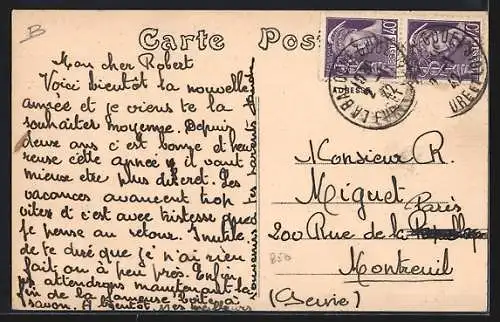 B
Carte Pos
40
40
ADRESSE
Mon cher Robert
Voici bientôt la nouvelle
année et je viens te la
souhaiter moyenne. Depuis
deux ans c'est bonne et heu
reuse cette année il vaut
mieux être plus discret. Les
vacances avancent trop
vites et c'est avec tristesse que
je pense au retour. Inutile
de te dire que je n'ai rien
fait ou à peu près. Enfin
attendons maintenant la
fin de la fameuse boite à
savon. A bientôt mes meilleurs
Monsieur R.
Miguet
Paris
200 Rue de la
Montreuil
(Seine)